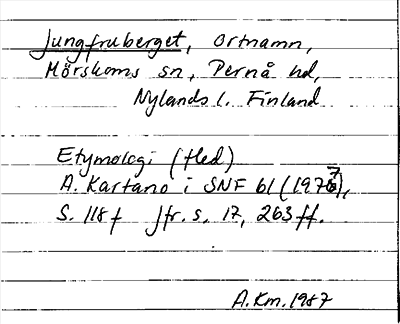 Jungfruberget, ortnamn,
Mörskoms sn, Pernå hd,
Nylands l. Finland
Etymologi (fled)
A. Kartano i SNF 61 (1977),
S. 118 f Jfr. s. 17, 263 ff.
A.Km. 1987